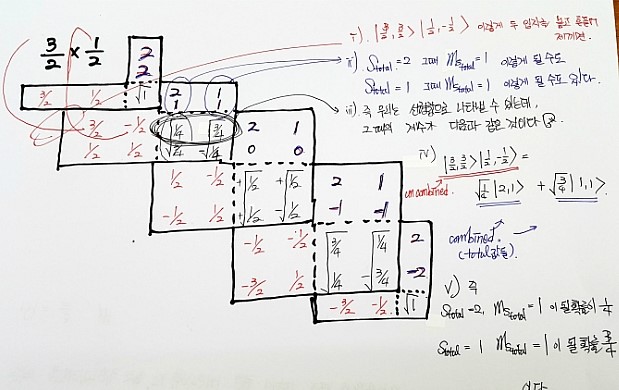 3/2 × 1/2
2
2
3/2 1/2 √1 2 1
1 1
3/2 -1/2 √1/4 √3/4 2 1
1/2 1/2 √3/4 -√1/4 0 0
1/2 -1/2 +√1/2 +√1/2 2 1
-1/2 1/2 +√1/2 -√1/2 -1 -1
-1/2 -1/2 √3/4 √1/4 2
-3/2 1/2 √1/4 -√3/4 -2
-3/2 -1/2 √1
i). |3/2, 3/2> |1/2, -1/2> 이렇게 두 입자를
ii) Stotal = 2 그때 mstotal = 1 이렇게 될 수도
Stotal = 1 그때 mstotal = 1 이렇게 될 수도 있다.
iii) 즉 우리는 선형합으로 나타낼 수 있는데,
그때의 계수가 다음과 같은 것이다
iv) |3/2, 3/2> |1/2, -1/2> =
uncombined. √1/4 |2,1> + √3/4 |1,1>
combined.
(-total값들)
v) 즉
Stotal=2, mstotal = 1 이 될 확률이 1/4
Stotal = 1 mstotal = 1 이 될 확률 3/4